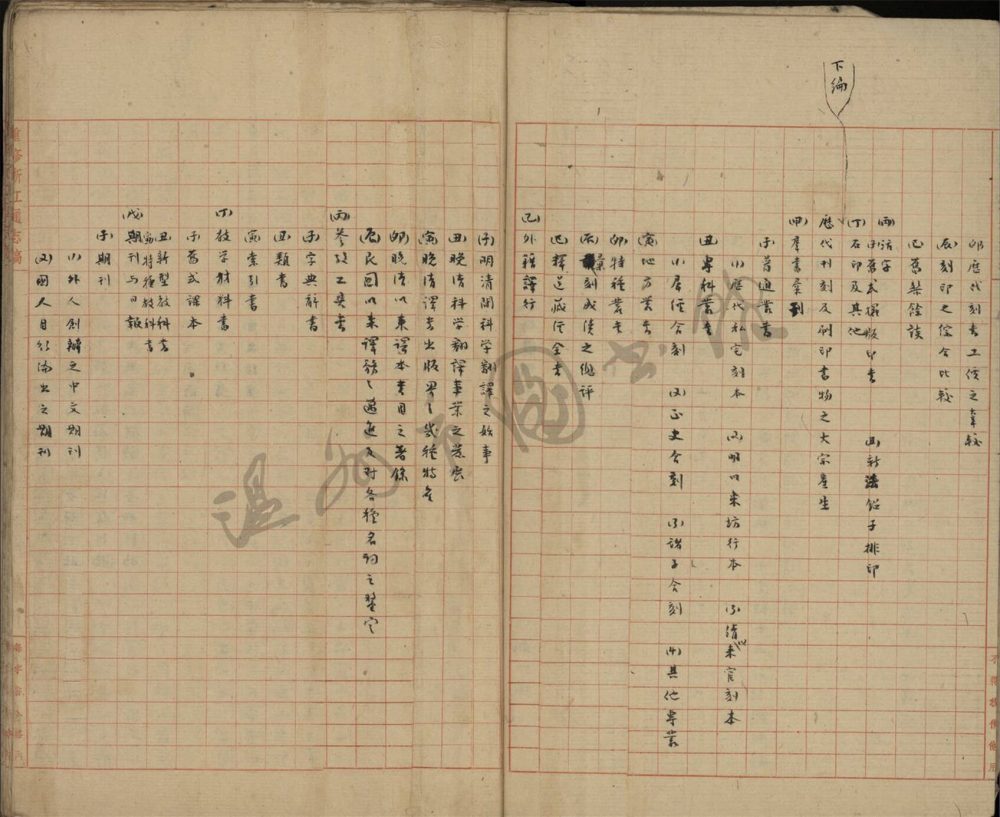 下編
卯歷代刻書工價之車較
辰刻印之综合比較
巳舊槧餘談
丙活字
(1)舊式擺版印書 (2)新法鉛子排印
丁石印及其他
歷代刊刻及刷印書物之大宗產生
甲羣書彙刊
子普通叢書
(1)歷代私宅刻本 (2)明以来坊行本 (3)清以来官刻本
丑專科叢書
(1)居經合刻 (2)正史合刻 (3)諸子合刻 (4)其他專業
寅地方叢書
卯特種叢書
辰彙刻成績之總評
巳釋道藏經全書
己外籍譯行
子明清間科学翻譯之始事
丑晚清科学翻譯事業之發展
寅晚清譯書出版界之幾種特色
卯晚清以来譯本書目之著錄
辰民國以来譯籍之邁進及对各種名詞之釐定
丙參攷工具書
子字典辭書
丑類書
寅索引書
丁教学材料書
子舊式課本
丑新型教科書
寅特種教科書
戊期刊与日報
子期刊
(1)外人創辦之中文期刊
(2)國人自紹編出之期刊
重修浙江通志稿
温州市圖書館